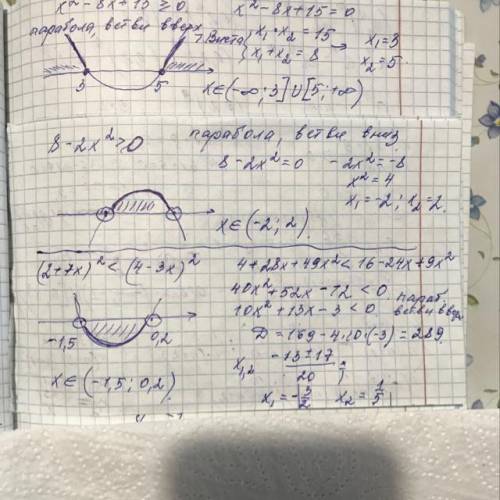 x² - 8x + 15 ≥ 0
x² - 8x + 15 = 0
парабола, ветви вверх
т. Виета
x₁ · x₂ = 15
x₁ + x₂ = 8
x₁ = 3
x₂ = 5
3 5
x ∈ (-∞; 3] ∪ [5; +∞)
8 - 2x² > 0
парабола, ветви вниз
8 - 2x² = 0
-2x² = -8
x² = 4
x₁ = -2; x₂ = 2.
x ∈ (-2; 2).
(2 + 7x)² < (4 - 3x)²
4 + 28x + 49x² < 16 - 24x + 9x²
40x² + 52x - 12 < 0
10x² + 13x - 3 < 0
параб. ветви вверх
D = 169 - 4·10·(-3) = 289
-1,5 0,2
x₁,₂ = (-13 ± 17)/20;
x ∈ (-1,5; 0,2)
x₁ = -3/2 x₂ = 1/5